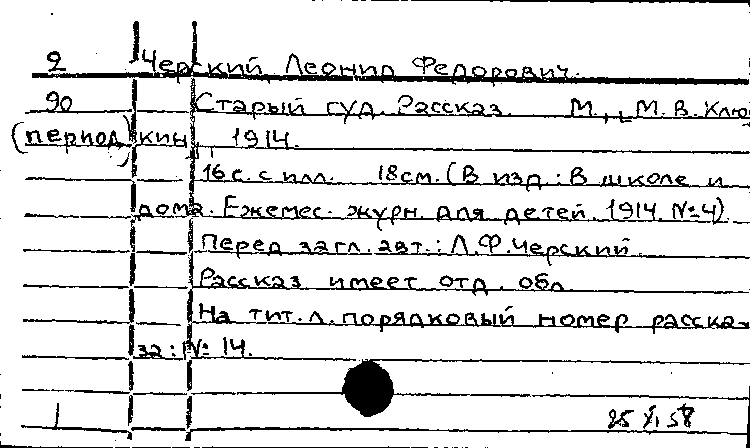 2 Черский, Леонид Федорович.
90 Старый гуд. Рассказ. М., М. В. Клю
(период) кин, 1914.
16 с. с илл. 18см. (В изд.: В школе и
дома. Ежемес. журн. для детей. 1914. №4).
Перед загл. авт.: Л.Ф.Черский
Рассказ имеет отд. обл.
На тит. л. порядковый номер расска-
за: № 14.
1 25 XI 58